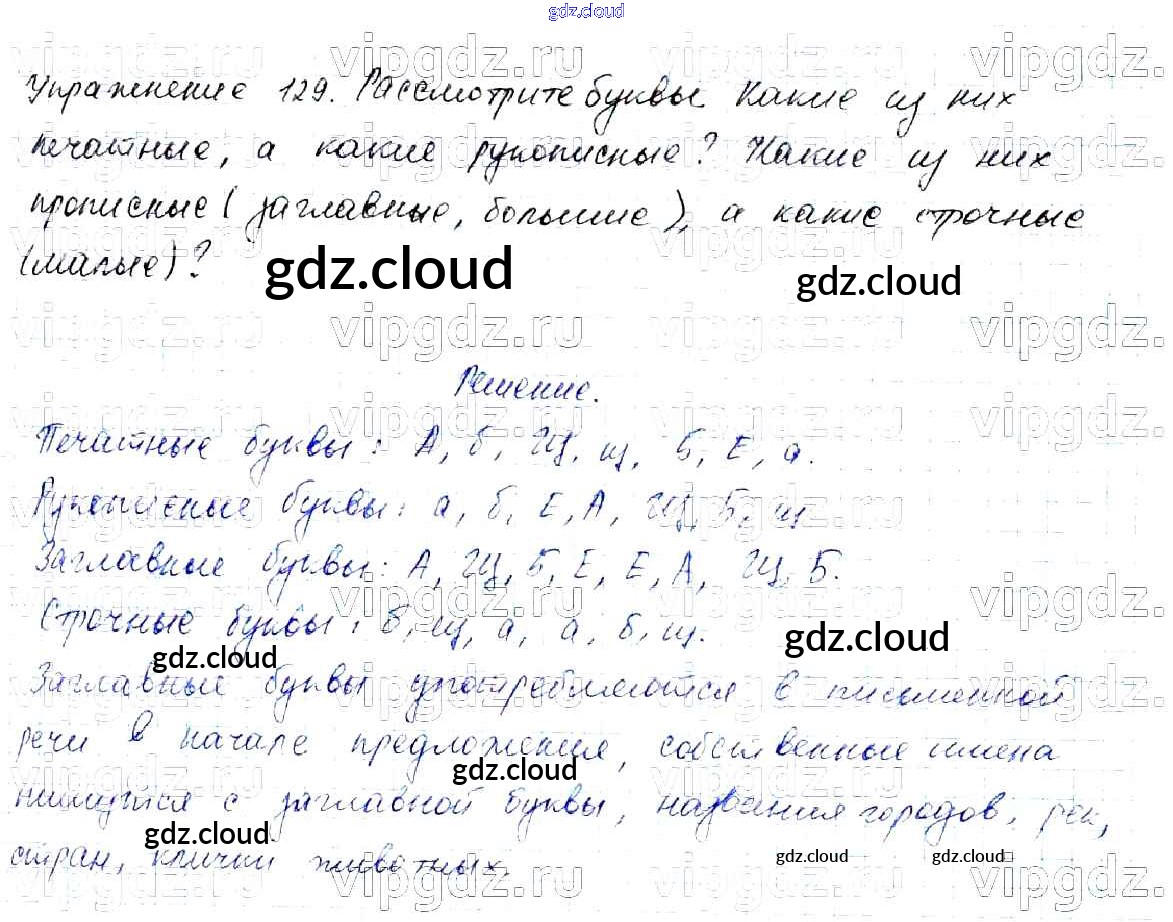 gdz.cloud
Упражнение 129. Рассмотрите буквы. Какие из них
печатные, а какие рукописные? Какие из них
прописные (заглавные, большие), а какие строчные
(малые)?
gdz.cloud
gdz.cloud
vipgdz.ru vipgdz.ru vipgdz.ru vipgdz.ru
Решение.
Печатные буквы: А, б, Щ, щ, Б, Е, а.
Рукописные буквы: а, б, Е, А, Щ, Б, щ
Заглавные буквы: А, Щ, Б, Е, Е, А, Щ, Б.
Строчные буквы: б, щ, а, а, б, щ.
gdz.cloud
gdz.cloud
Заглавные буквы употребляются в письменной
речи в начале предложения, собственные имена
gdz.cloud
пишутся с заглавной буквы, названия городов, рек,
gdz.cloud
стран, клички животных.
gdz.cloud gdz.cloud